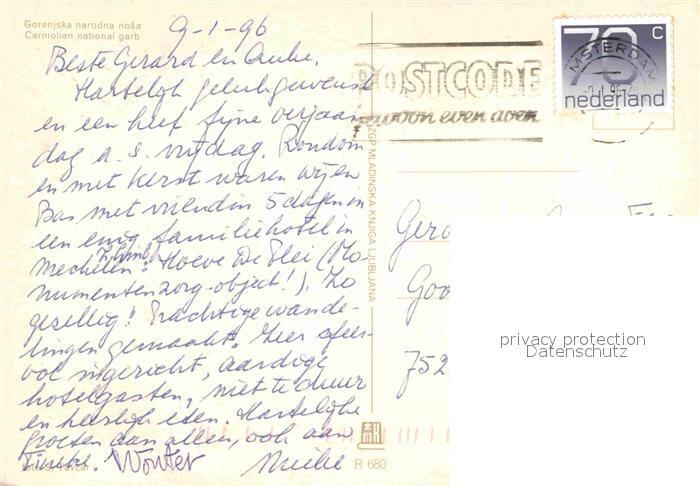 Gorenjska narodna noša
Carniolian national garb
9-1-96
Beste Gerard en
Hartelijk gelukgewenst
en een heel fijne verjaar-
dag a.s. vrijdag. Rondom
en met Kerst waren wij en
Bas met vrienden 5 dagen in
een enig familiehotel in
Mechelen: Hoeve De Plei (Mo-
numentenzorg-object!). Zo
gezellig! Prachtige wande-
lingen gemaakt. Zeer sfeer-
vol ingericht, aardige
hotelgasten, niet te duur
en heerlijk eten. Hartelijke
groeten aan allen, ook aan
Tineke. Wouter Mieke
ZGP MLADINSKA KNJIGA LJUBLJANA
R 680
POSTCODE
gewoon even doen
AMSTERDAM
70 c
nederland
Gera
Goo
752
privacy protection
Datenschutz